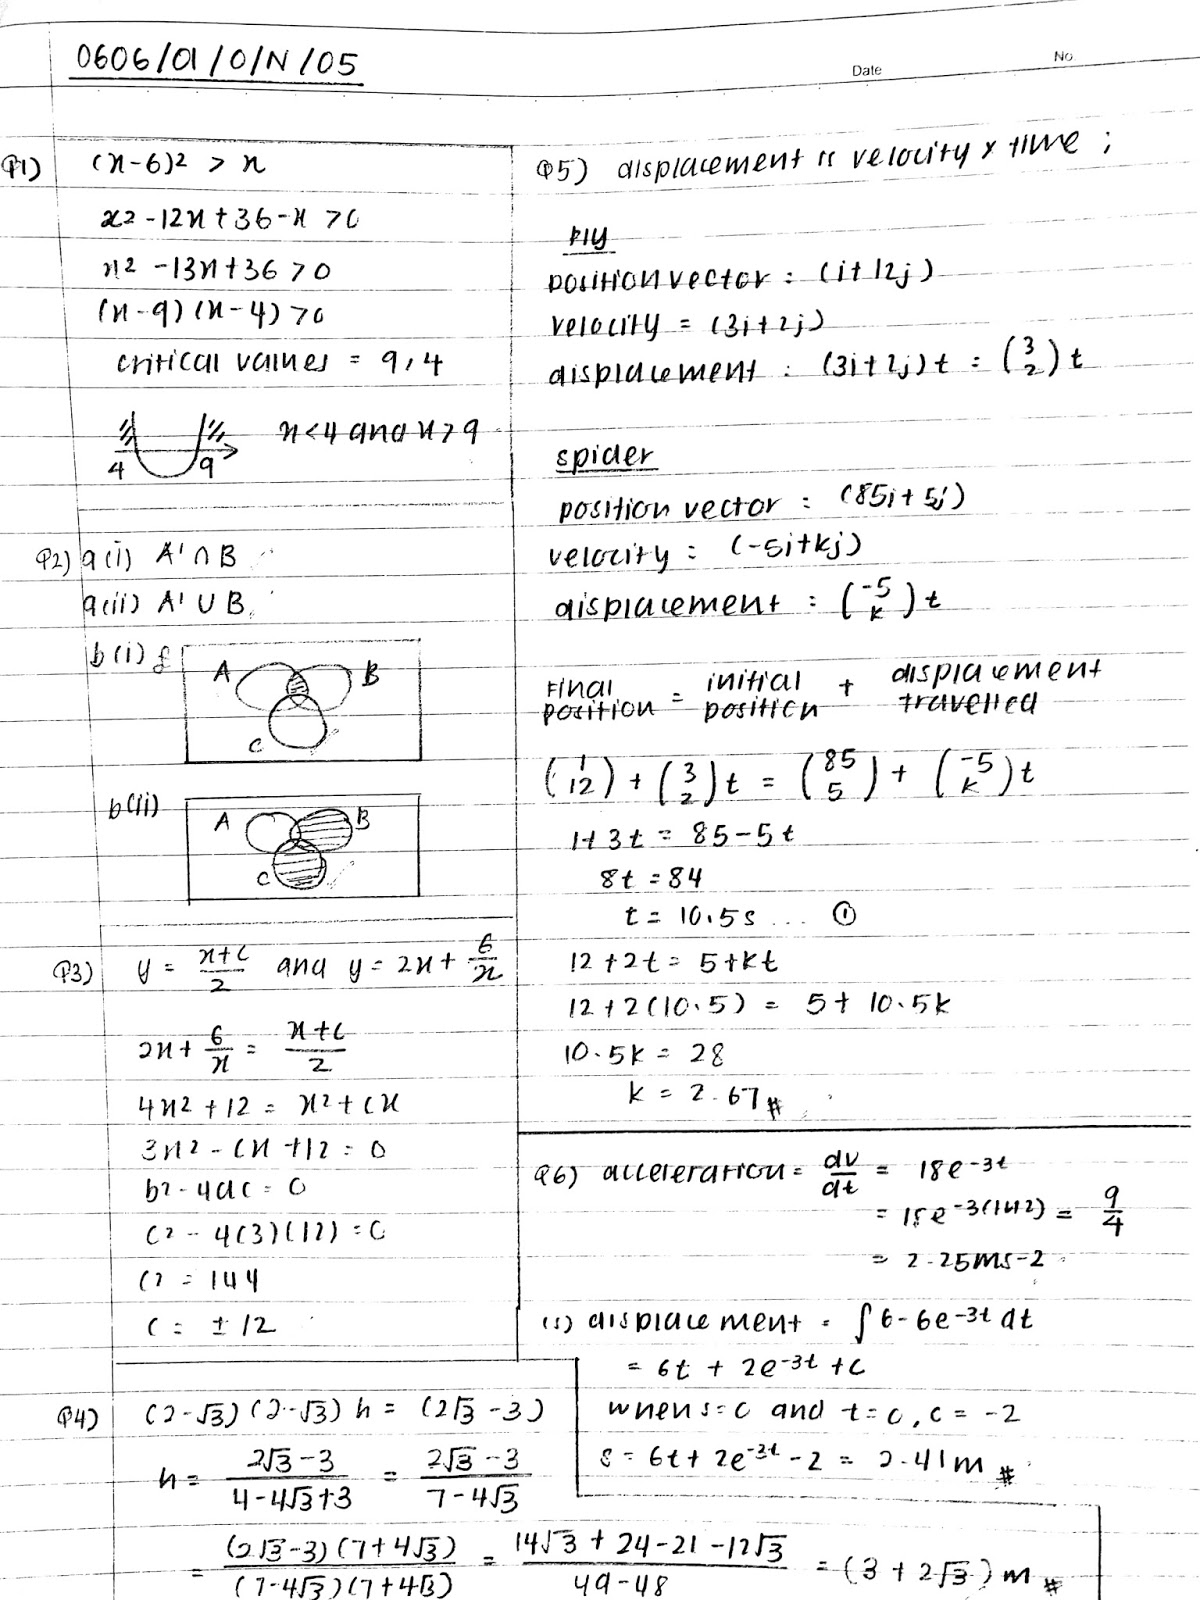 0606/01/O/N/05
Date
No.
Q1) (x-6)² > x
x² -12x + 36 - x > 0
x² - 13x + 36 > 0
(x-9)(x-4) > 0
critical values = 9, 4
4 9 x<4 and x>9
Q2) a(i) A' ∩ B
a(ii) A' ∪ B
b(i) ξ
A B
C
b(ii)
A B
C
Q3) y = (x+c)/2 and y = 2x + 6/x
2x + 6/x = (x+c)/2
4x² + 12 = x² + cx
3x² - cx + 12 = 0
b² - 4ac = 0
c² - 4(3)(12) = 0
c² = 144
c = ± 12
Q4) (2-√3)(2-√3) h = (2√3 - 3)
h = (2√3 - 3)/(4-4√3+3) = (2√3 - 3)/(7 - 4√3)
= (2√3-3)(7+4√3)/(7-4√3)(7+4√3) = (14√3 + 24 - 21 - 12√3)/(49-48) = (3 + 2√3) m #
Q5) displacement = velocity × time ;
fly
position vector : (i + 12j)
velocity = (3i + 2j)
displacement : (3i + 2j)t = (3 2)t
spider
position vector : (85i + 5j)
velocity : (-5i + kj)
displacement : (-5 k) t
Final position = initial position + displacement travelled
(1 12) + (3 2)t = (85 5) + (-5 k)t
1+3t = 85-5t
8t = 84
t = 10.5s ... ①
12 + 2t = 5 + kt
12 + 2(10.5) = 5 + 10.5k
10.5k = 28
k = 2.67 #
Q6) acceleration = dv/dt = 18e^-3t
= 18e^-3(ln2) = 9/4
= 2.25ms-2
(s) displacement = ∫ 6 - 6e^-3t dt
= 6t + 2e^-3t + c
when s = 0 and t = 0, c = -2
s = 6t + 2e^-3t - 2 = 2.41m #